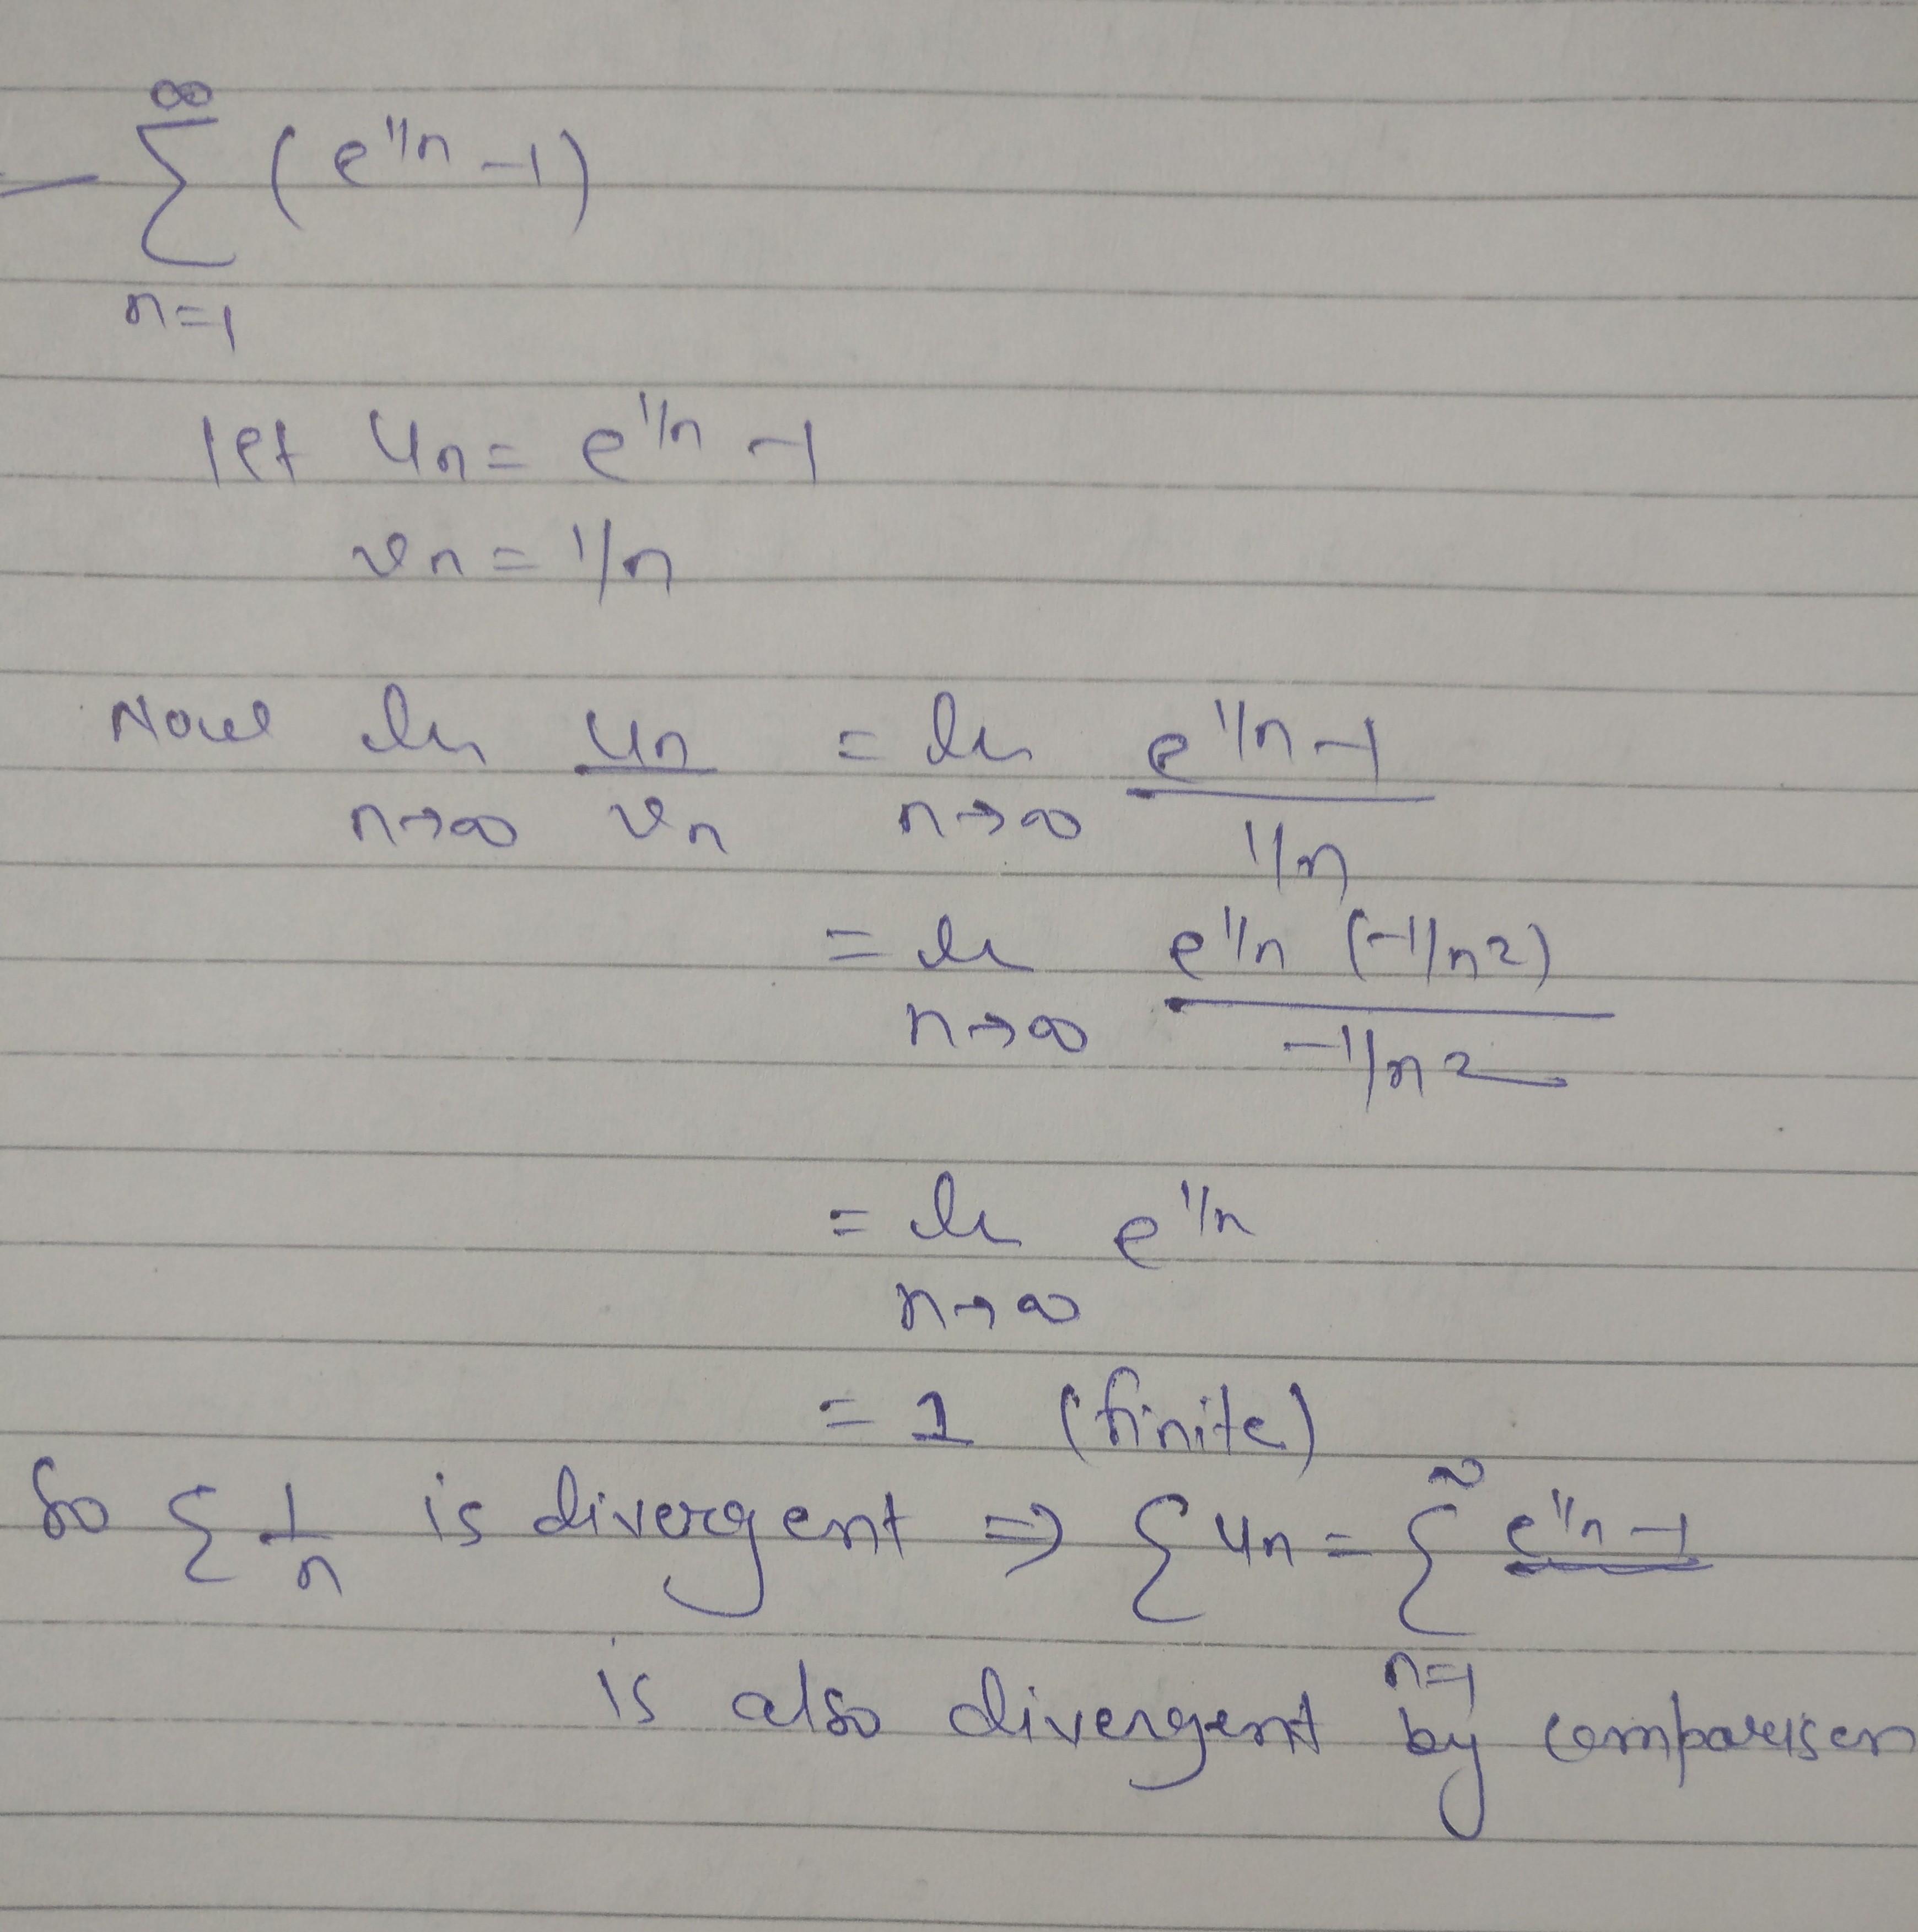 ∞
— Σ (e^1/n -1)
n=1
let Un = e^1/n -1
vn = 1/n
Now lim Un/vn = lim (e^1/n -1)/(1/n)
n→∞ n→∞
= lim (e^1/n (-1/n2))/(-1/n2)
n→∞
= lim e^1/n
n→∞
= 1 (finite)
So Σ 1/n is divergent ⇒ Σ Un = Σ^∞ e^1/n -1
n=1
is also divergent by comparison